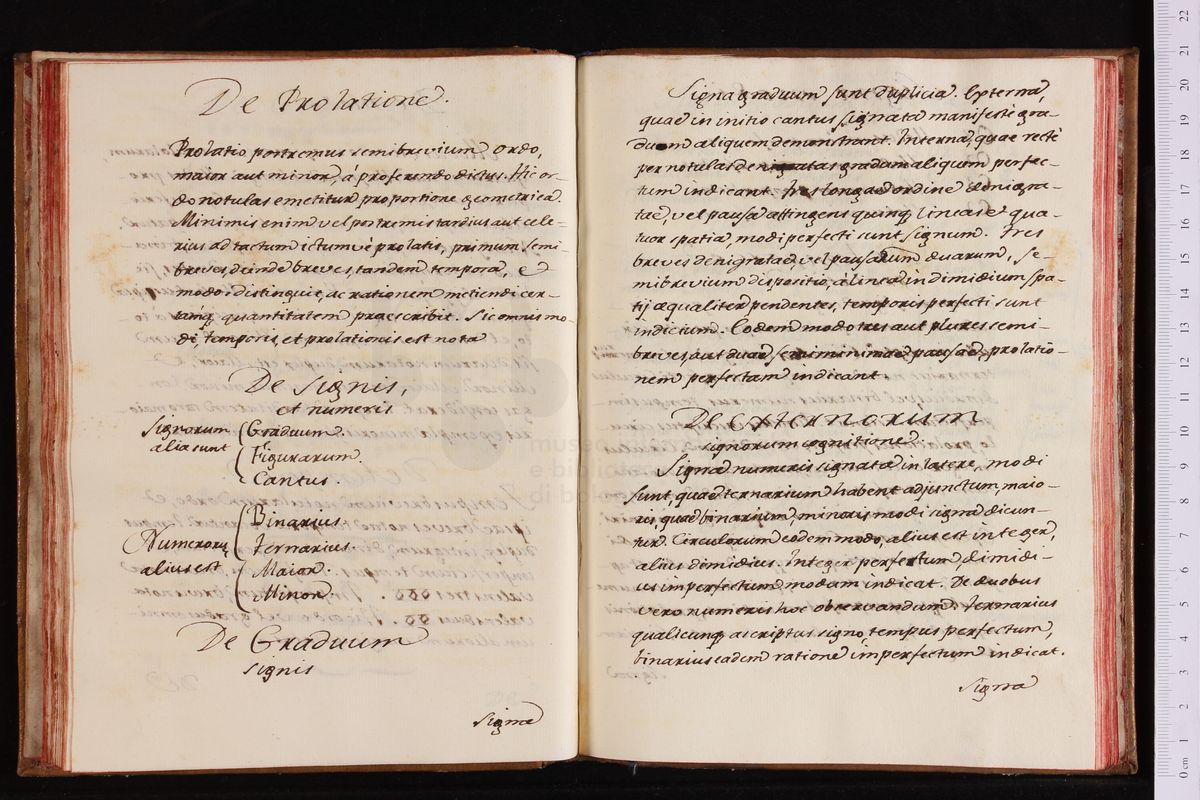 De Prolatione.
Prolatio postremus semibrevium ordo,
maior aut minor, á proferendo dictus. Hic or-
do notulas emetitur proportione geometrica.
Minimis enim vel postremis tardius aut cele-
rius ad tactum ictumvè prolatis, primum semi
breves, deinde breves, tandem tempora, et
modos distinguit, ac rationem metiendi cer-
tamq quantitatem praescribit. Sic omnis mo-
di, temporis, et prolationis est nota
De signis,
et numeris
Signorum
alia sunt
Graduum.
Figurarum.
Cantus.
Numerorũ
alius est
Binarius
Ternarius.
Maior.
Minor.
De Graduum
signis
Signa
Signa graduum sunt duplicia. Externa,
quae in initio cantus signata manifestè gra-
duum aliquem demonstrant. Interna, quae rectè
per notulas denigratas gradum aliquem perfec-
tum indicant. Tres longae ordine denigra-
tae, vel pausa attingens quinq lineas et qua-
tuor spatia, modi perfecti sunt signum. Tres
breves denigratae, vel pausarum duarum, se-
mibrevium dispositio, á linea in dimidium spa-
tij aequaliter pendentes, temporis perfecti sunt
indicium. Eodem modo tres aut plures semi-
breves, aut duae minimae pausae, prolatio-
nem perfectam indicant.
De externorum
signorum cognitione
Signa numeris signata in latere, modi
sunt, quae ternarium habent adjunctum, maio-
ris, quae binarium, minoris modi signa dicun-
tur. Circulorum eodem modo, alius est integer,
alius dimidius. Integer perfectum, dimidi-
us imperfectum modum indicat. De duobus
vero numeris hoc observandum. Ternarius
qualicunq ascriptus signo, tempus perfectum,
binarius eadem ratione imperfectum indicat.
Signa
museo internazionale
e biblioteca
di bologna
0 cm 1 2 3 4 5 6 7 8 9 10 11 12 13 14 15 16 17 18 19 20 21 22